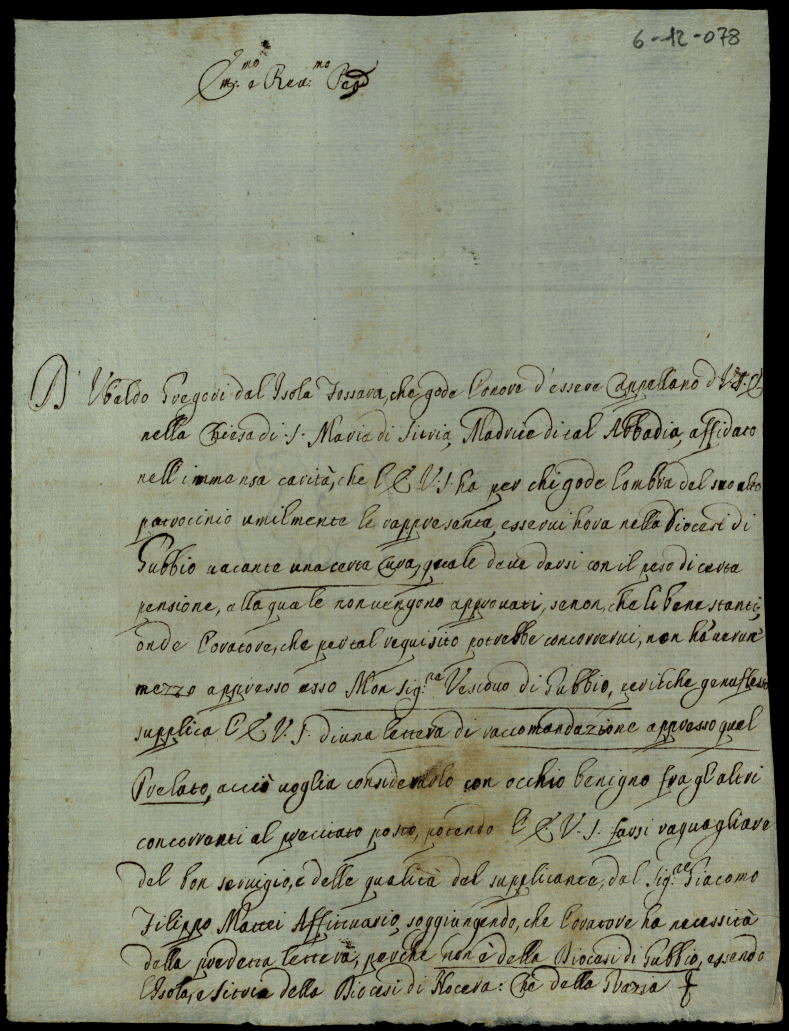 6-12-078
Em.mo e Rev.mo Pnp
D. Ubaldo Gregori dal Isola Fossara, che gode l'onore d'essere Cappellano di V. E.
nella Chiesa di S. Maria di Sitria, Madrice di tal Abbadia, affidato
nell'immensa carità, che l'E. V. S. ha per chi gode l'ombra del suo alto
patrocinio umilmente le rappresenta esservi hora nella Diocesi di
Gubbio vacante una certa Cura, quale deve darsi con il peso di certa
pensione, alla quale non vengono approvati, se non, che li benestanti,
onde l'oratore, che per tal requisito potrebbe concorrervi, non hà verun
mezzo appresso esso Monsig.re Vescovo di Gubbio, genuflesso
supplica l'E. V. S. di una lettera di raccomandazione appresso quel
Prelato, acciò voglia considerarlo con occhio benigno fra gl'altri
concorrenti al precitato posto, potendo l'E. V. S. farsi raguagliare
del bon servigio, e delle qualità del supplicante, dal Sig.re Giacomo
Filippo Mattei Affittuario, soggiungendo, che l'oratore ha necessità
della predetta lettera, perche non è della Diocesi di Gubbio, essendo
l'Isola, e Sitria della Diocesi di Nocera: Che della Grazia